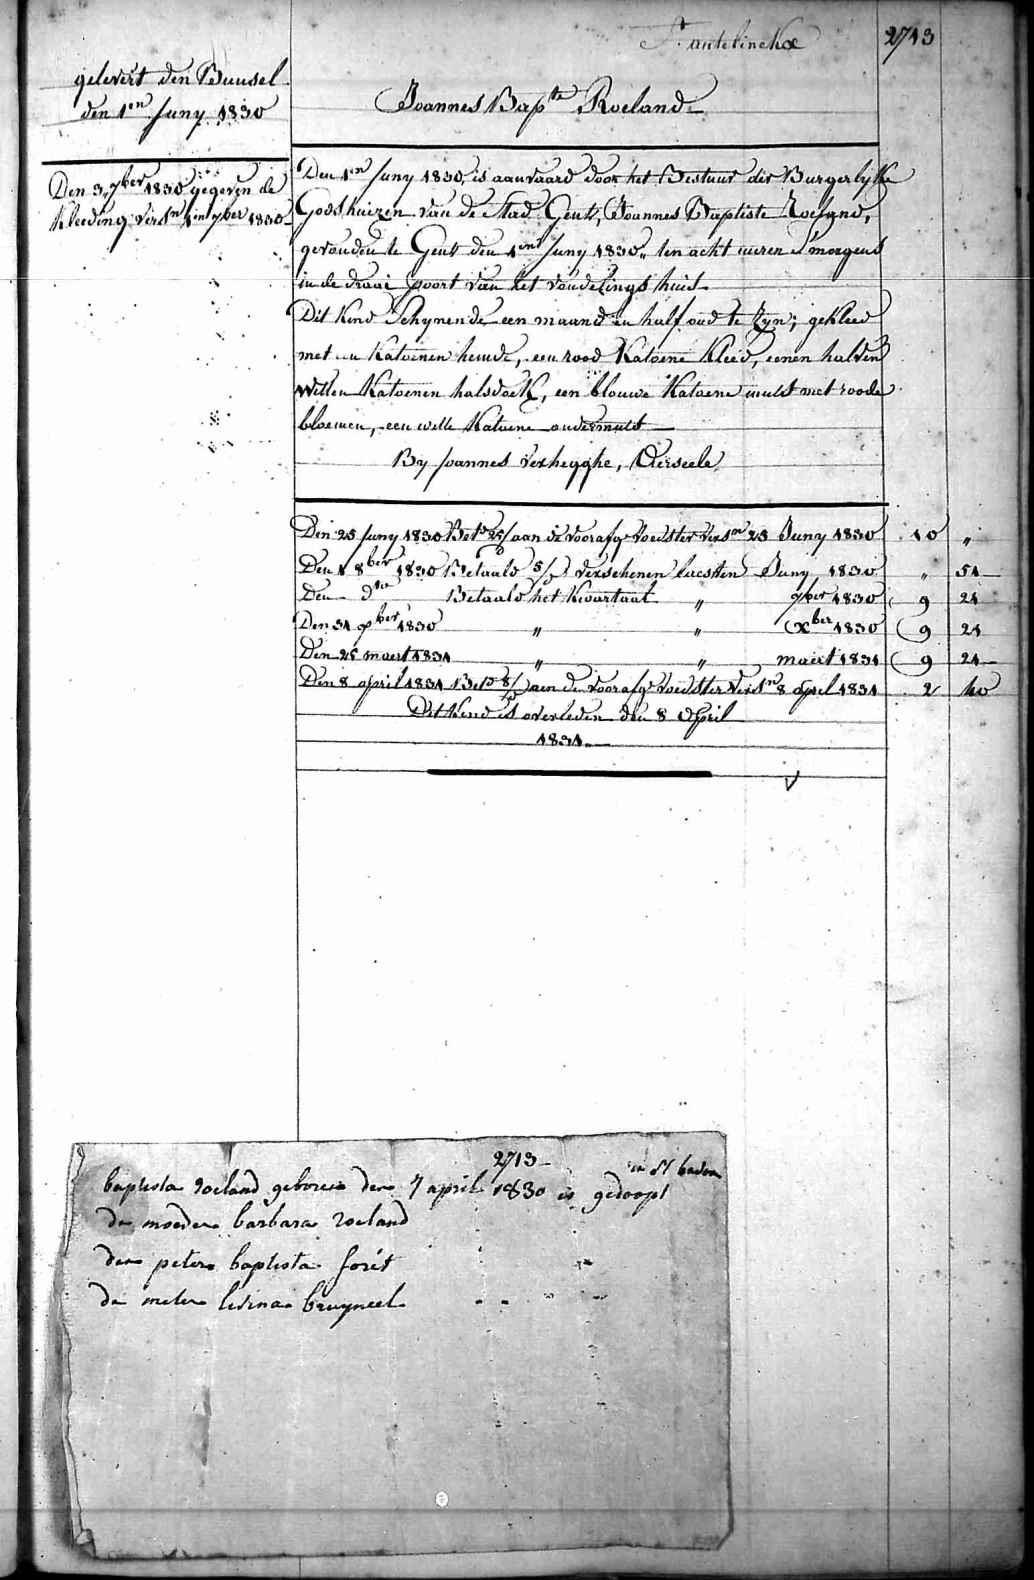 2713
gelevert den Bunsel
den 1en Juny 1830
Joannes Bapte Roeland
Den 3 7ber 1830 gegeven de
kleeding versn 1en 7ber 1830
Den 1en Juny 1830, is aanvaard door het Bestuur der Burgerlyke
Godshuizen van de Stad Gent, Joannes Baptiste Roeland,
gevonden te Gent den 1en Juny 1830, ten acht ueren s'morgens
in de draai poort van het vondelings huis
Dit kind Schynende een maand en half oud te Zyn; gekleed
met en Katoenen hemde, een rood Katoene Kleed, eenen halven
witten Katoenen halsdoek, een blouwe Katoene muts met roode
bloemen, een witte Katoene ondermuts
By Joannes Verhegghe, Aerseele
Den 25 Juny 1830 Bet. 25/ aan de voorafge voedster versn 25 Juny 1830 10 "
Den 8ber 1830 Betaald 5/ verschenen laesten Juny 1830 " 51
Den dito Betaald het kwartaal " 7ber 1830 9 21
Den 31 xber 1830 " " Xber 1830 9 21
Den 25 maert 1831 " " maert 1831 9 21
Den 8 april 1831 Bet. 8/ aen de voorafge voedster versn 8 april 1831 2 40
Dit kind is overleden den 8 April
1831
2713
baptista roeland geboren den 7 april 1830 is gedoopt
in St baven
de moeder barbara roeland
den peter baptista forét
de meter bruyneel